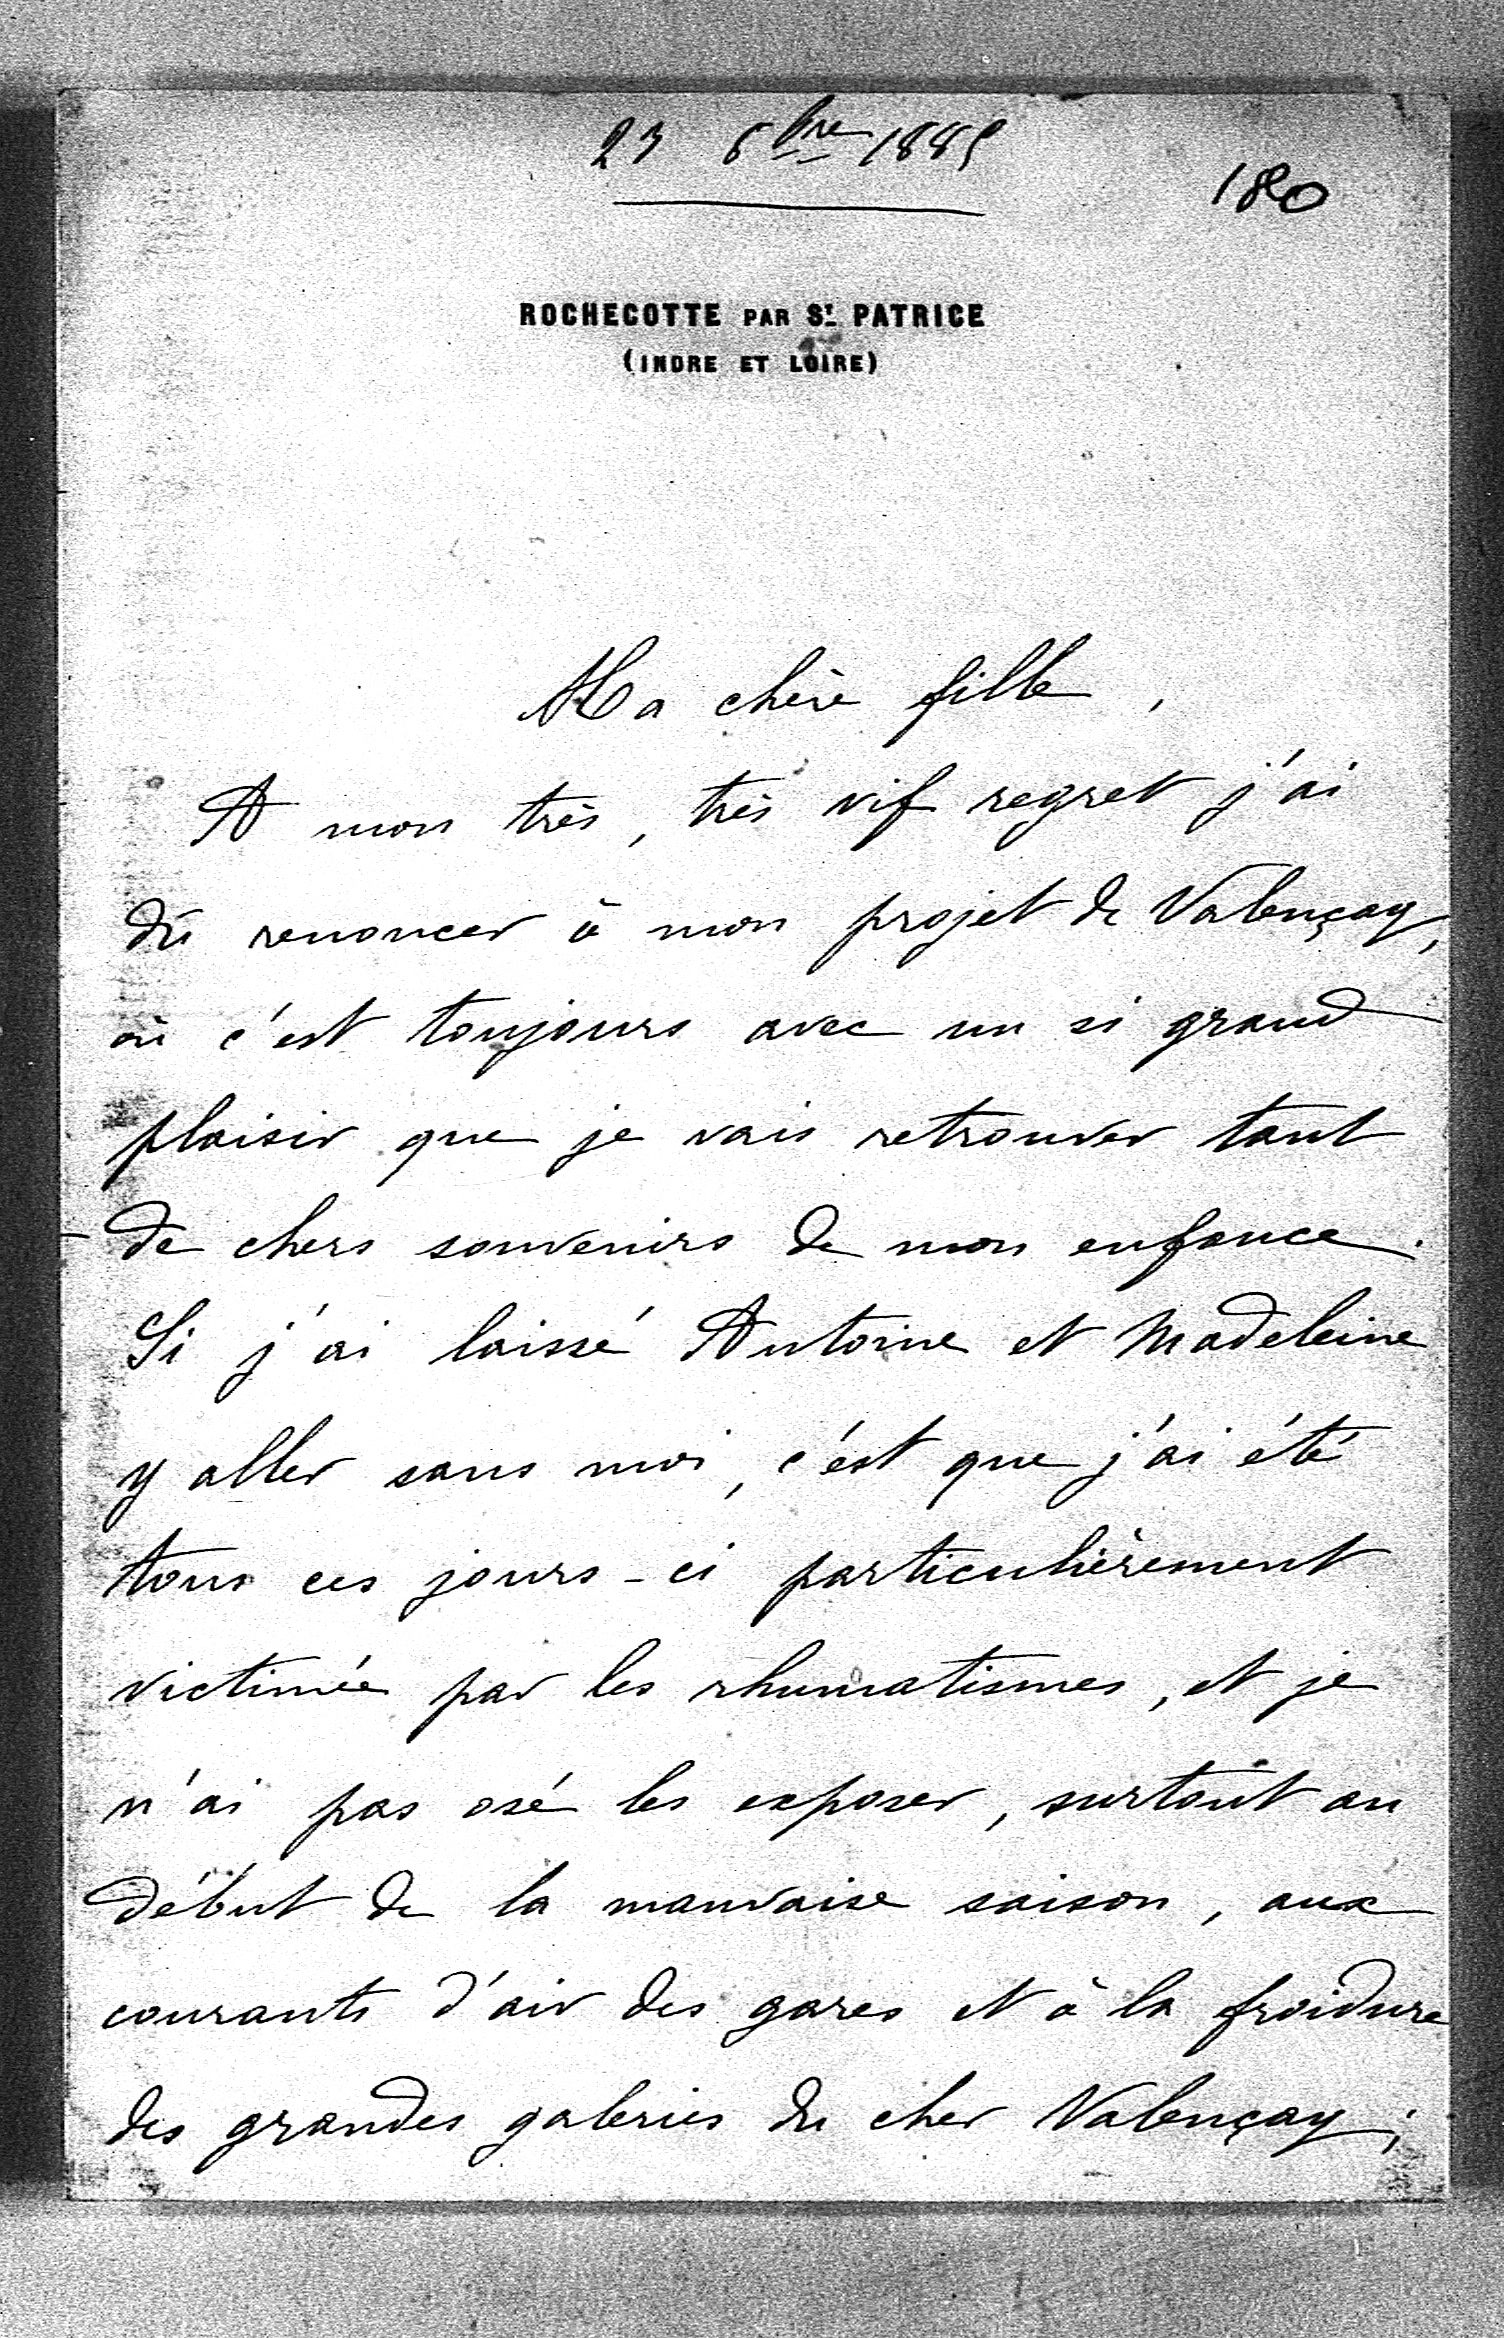 23 8bre 1885
180
ROCHECOTTE PAR ST. PATRICE
(INDRE ET LOIRE)
Ma chère fille,
A mon très, très vif regret j'ai
dû renoncer à mon projet de Valençay,
où c'est toujours avec un si grand
plaisir que je vais retrouver tant
de chers souvenirs de mon enfance.
Si j'ai laissé Antoine et Madeleine
y aller sans moi, c'est que j'ai été
tous ces jours-ci particulièrement
victimée par les rhumatismes, et je
n'ai pas osé les exposer, surtout au
début de la mauvaise saison, aux
courants d'air des gares et à la froidure
des grandes galeries du cher Valençay;